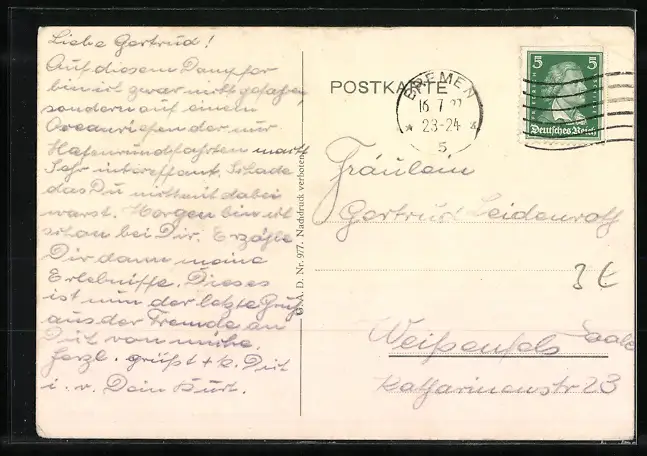 Liebe Gertrud!
Auf diesem Dampfer
bin ich zwar nicht gefahren,
sondern auf einem
Ozeanriesen der nur
Hafenrundfahrten macht
Sehr interessant. Schade
das Du nicht mit dabei
warst. Morgen bin ich
schon bei Dir. Erzähle
Dir dann meine
Erlebnisse. Dieses
ist nun der letzte Gruß
aus der Fremde an
Dich von mir.
Herzl. grüßt + k. Dich
i. v. Dein Kurt.
G. A. D. Nr. 977. Nachdruck verboten.
POSTKARTE
BREMEN
16. 7. 27
* 23-24 *
5
5 5
FRIEDRICH SCHILLER
Deutsches Reich
Fräulein
Gertrud Leidenroth
3 €
Weißenfels Saale
Katharinenstr 23